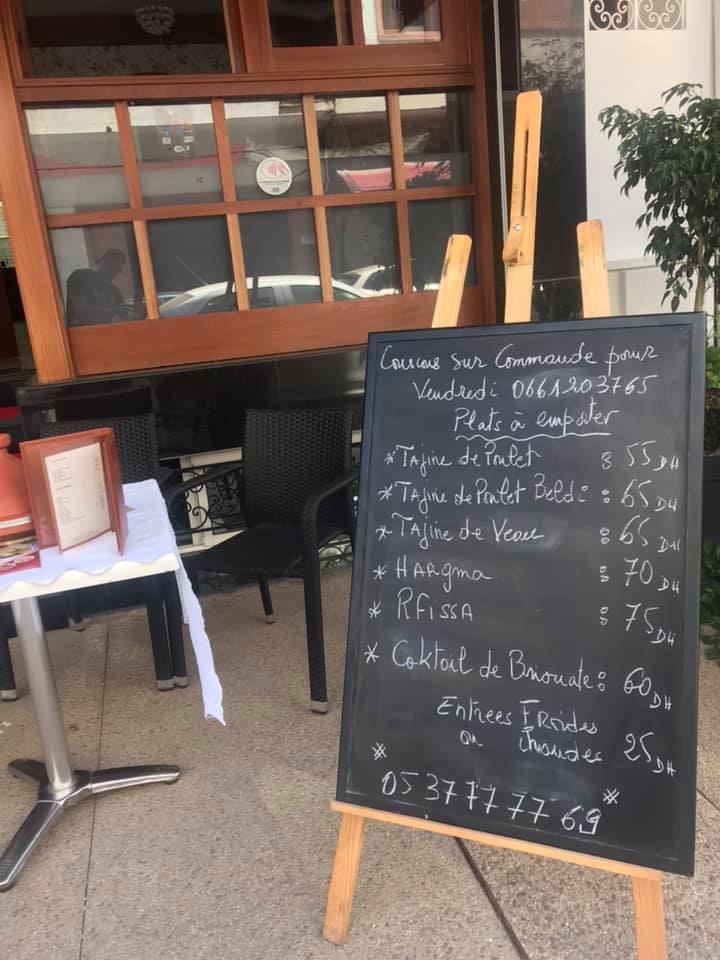 Couscous Sur Commande pour
Vendredi 0661203765
Plats à emporter
* Tajine de Poulet : 55 DH
* Tajine de Poulet Beldi : 65 DH
* Tajine de Veau : 65 DH
* HARgma : 70 DH
* RFissA : 75 DH
* Coktail de Briouate : 60 DH
Entrees FRoides
ou chaudes 25 DH
* 05 37 77 77 69 *